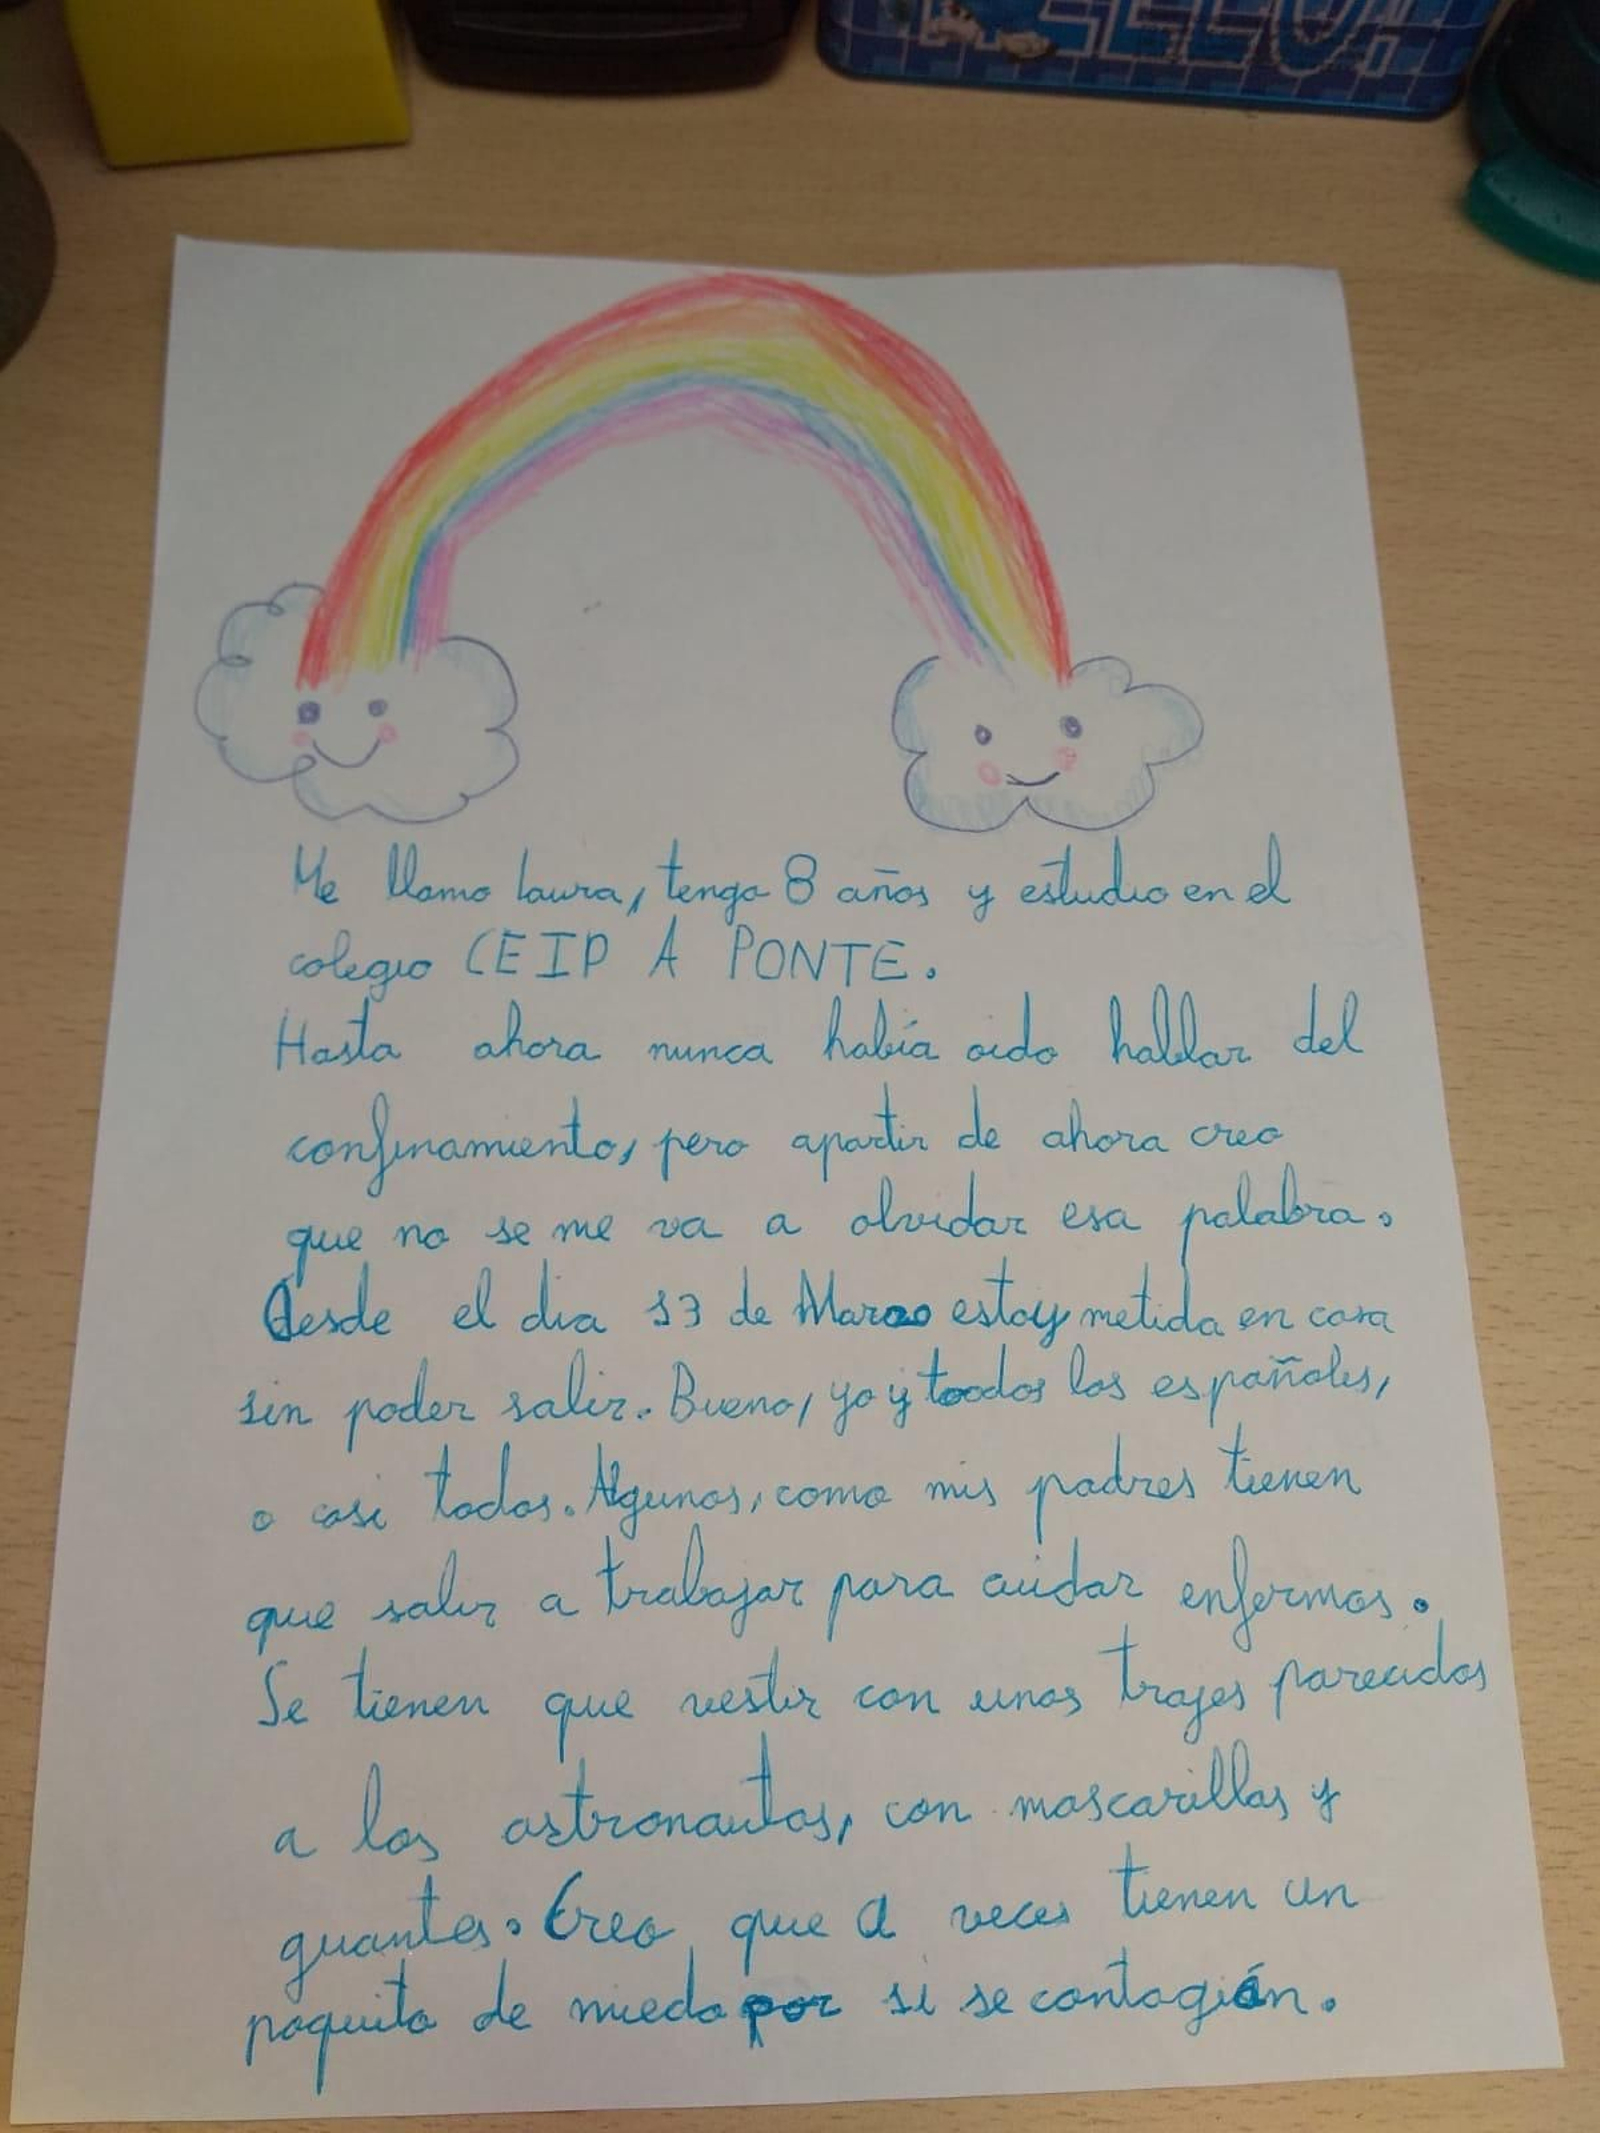 Me llamo Laura, tengo 8 años y estudio en el
colegio CEIP A PONTE.
Hasta ahora nunca había oido hablar del
confinamiento, pero apartir de ahora creo
que no se me va a olvidar esa palabra.
Desde el dia 13 de Marzo estoy metida en casa
sin poder salir. Bueno, yo y toodos los españoles,
o casi todos. Algunos, como mis padres tienen
que salir a trabajar para auidar enfermos.
Se tienen que vestir con unos trajes parecidos
a los astronautas, con mascarillas y
guantes. Creo que a veces tienen un
poquito de miedo por si se contagián.